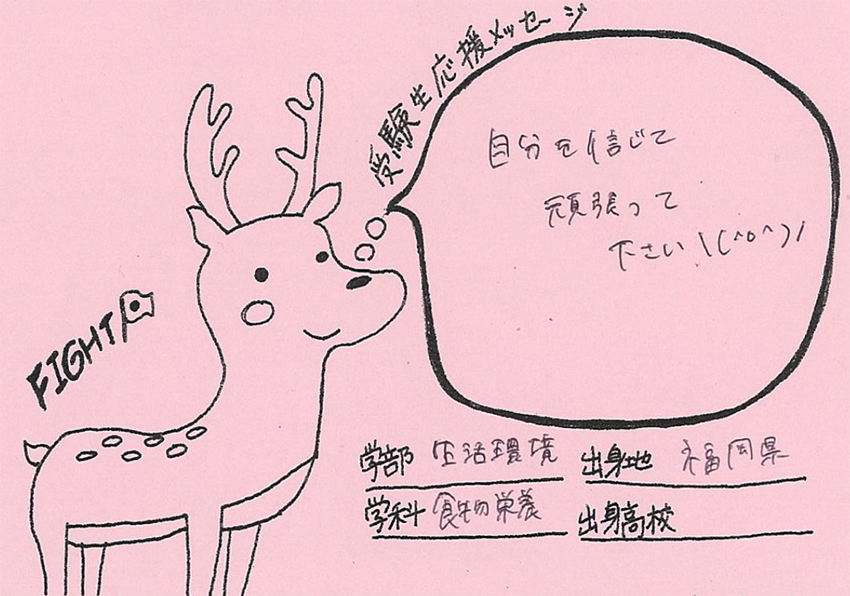 受験生応援メッセージ
自分を信じて
頑張って
下さい\(^o^)/
FIGHT
学部 生活環境
出身地 福岡県
学科 食物栄養
出身高校